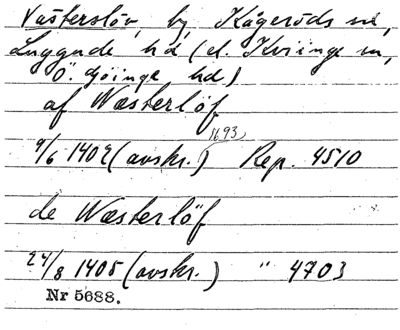 Västerslöv, by, Kågeröds sn,
Luggude hd (el. Kviinge sn,
Ö. Göinge hd)
af Wæsterlöf
1693
9/6 1402 (avskr.) Rep. 4510
de Wæsterlöf
24/8 1405 (avskr.) " 4703
Nr 5688.